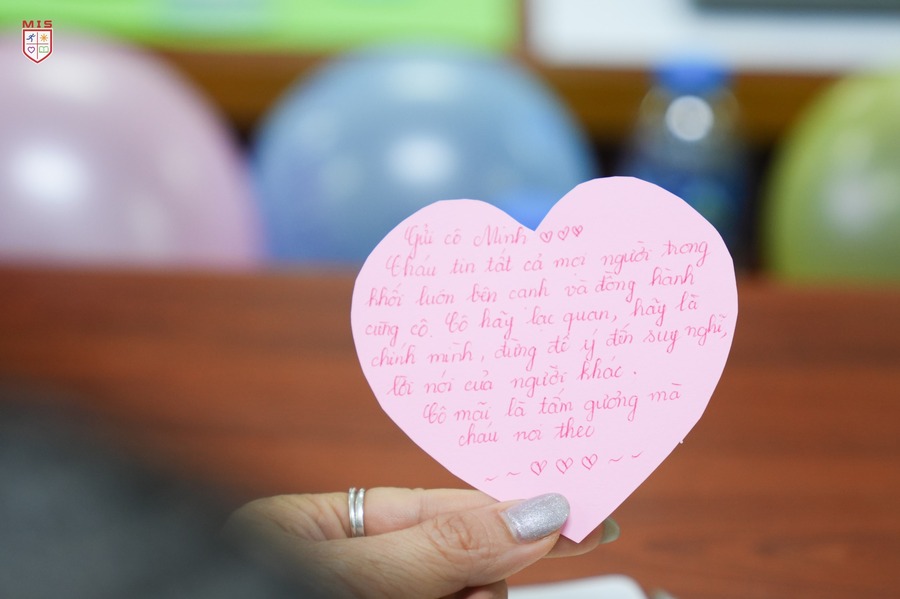 MIS
Gửi cô Minh ♡♡♡
Cháu tin tất cả mọi người trong
khối luôn bên cạnh và đồng hành
cùng cô. Cô hãy lạc quan, hãy là
chính mình, đừng để ý đến suy nghĩ,
lời nói của người khác.
Cô mãi là tấm gương mà
cháu noi theo
~ ~ ♡ ♡ ♡ ~ ~